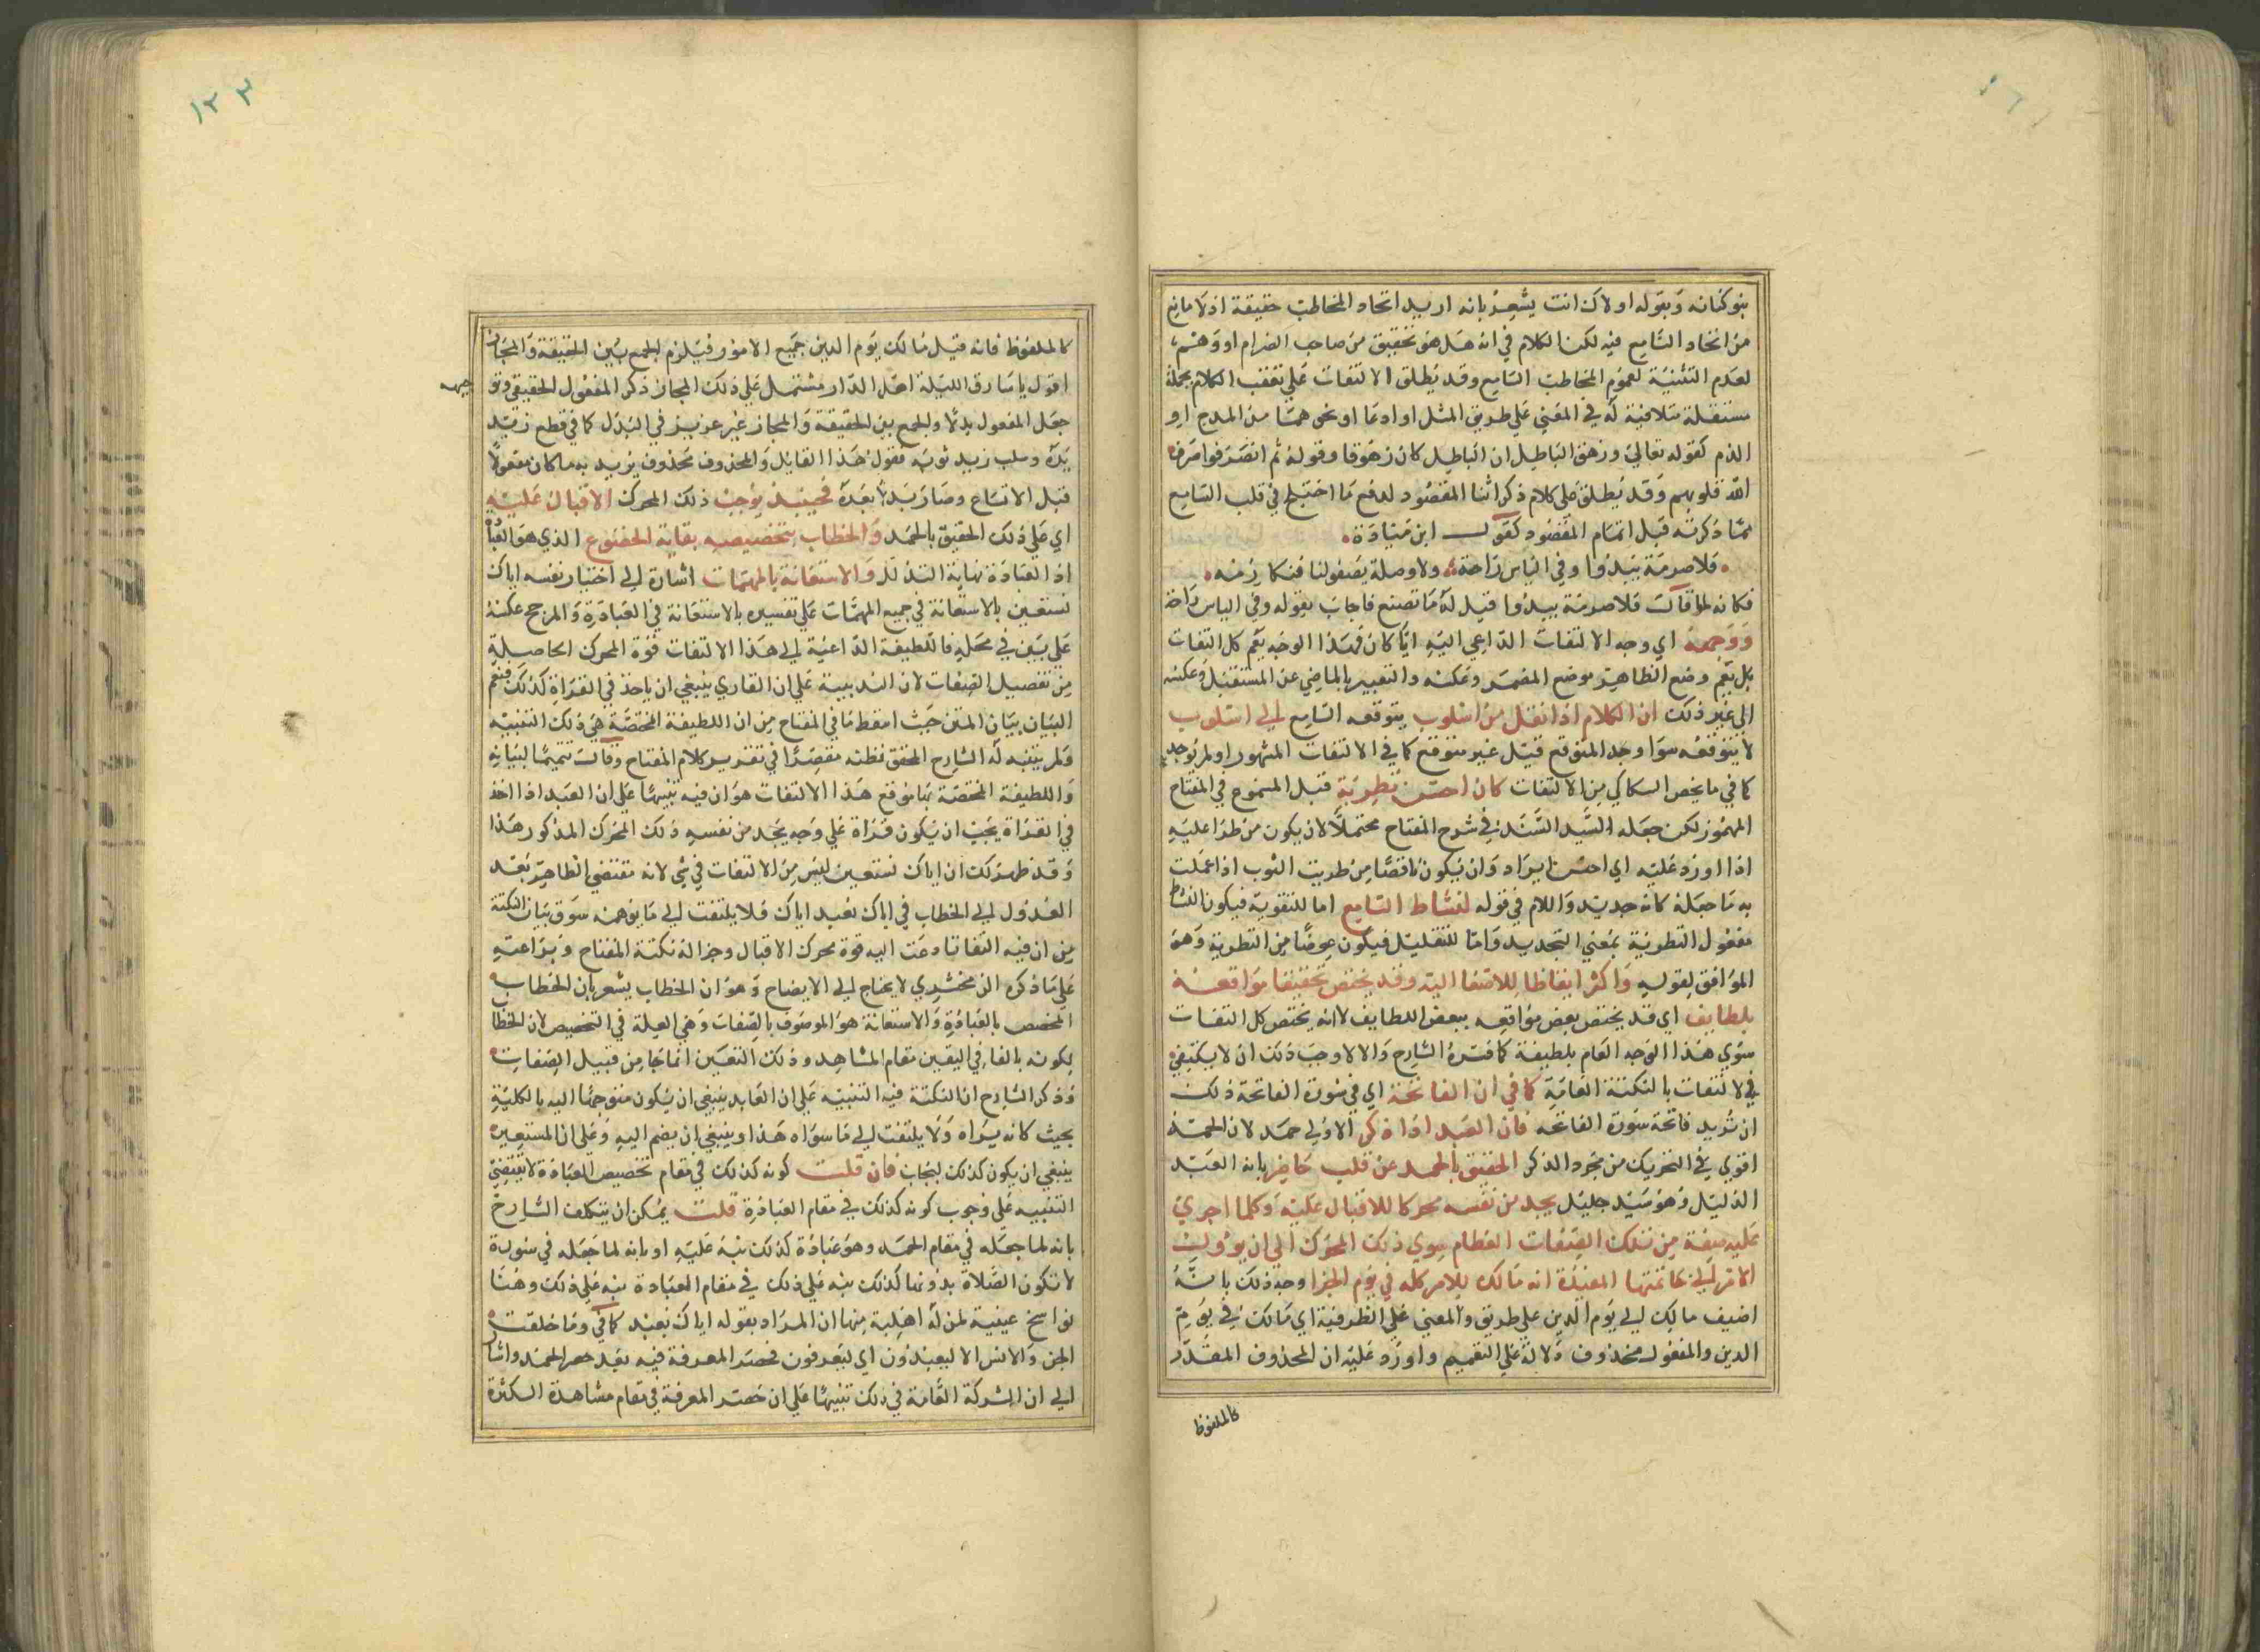 بنو كنانه وبقوله اولاك انت يشعر بانه اريد اتحاد المخاطب حقيقة اذ لا مانع
من اتحاد السامع فيه لكن الكلام في انه هل هو تحقيق من صاحب الضرام او وهم
لعدم التثنية لعموم المخاطب السامع وقد يطلق الالتفات على تعقب الكلام بجملة
مستقلة متلاقية له في المعنى على طريق المثل او ادعا او نحوهما من المدح او
الذم كقوله تعالى وزهق الباطل ان الباطل كان زهوقا وقوله ثم انصرفوا صرف
الله قلوبهم وقد يطلق على كلام ذكر اثنا المقصود لدفع ما اختلج في قلب السامع
مما ذكرته قبل اتمام المقصود كقول ابن ميادة
فلا صرمة يبدوا وفي الياس راحة ولا وصلة يصفو لنا فنكارمه
فكانه لما قال فلا صرمة يبدوا قيل له ما تصنع فاجاب بقوله وفي الياس راحة
ووجهه اي وجه الالتفات الداعي اليه ايا كان فهذا الوجه يعم كل التفات
بل يعم وضع الظاهر موضع المضمر وعكسه والتعبير بالماضي عن المستقبل وعكسه
الى غير ذلك ان الكلام اذا نقل من اسلوب يتوقعه السامع الى اسلوب
لا يتوقعه سوا وجد المتوقع قبل غير متوقع كما في الالتفات المشهور او لم يوجد
كما في ما يخص السكاكي من الالتفات كان احسن تطرية قبل المسموع في المفتاح
المهموز لكن جعله السيد السند في شرح المفتاح محتملا لان يكون من طرا عليه
اذا اورد عليه اي احسن ايراد وان يكون ناقصا من طريت الثوب اذا عملت
به ما جعله كانه جديد واللام في قوله لنشاط السامع اما للتقوية فيكون النشاط
مفعول التطرية بمعنى التجديد واما للتعليل فيكون عوضا من التطرية وهو
الموافق لقوله واكثر ايقاظا للاصغا اليه وقد يختص تحقيقا مواقعه
بلطايف اي قد يختص بعض مواقعه ببعض اللطايف لا انه يختص كل التفات
سوى هذا الوجه العام بلطيفة كما فسره الشارح والا لاوجب ذلك ان لا يكتفي
في الالتفات بالنكتة العامة كما في ان الفاتحة اي في سورة الفاتحة ذلك
ان تريد فاتحة سورة الفاتحه فان العبد اذا ذكر الاولى حمد لان الحمد
اقوى في التحريك من مجرد الذكر الحقيق بالحمد عن قلب حاضر بانه العبد
الذليل وهو سيد جليل يجد من نفسه محركا للاقبال عليه وكلما اجرى
عليه صفة من تلك الصفات العظام سوى ذلك المحرك الى ان يؤول
الامر الى خاتمتها المفيدة انه مالك للامر كله في يوم الجزا وجه ذلك بانه
اضيف مالك الى يوم الدين على طريق والمعنى على الظرفية اي مالك في يوم
الدين والمفعول محذوف دلالة على التعميم واورد عليه ان المحذوف المقدر
كالملفوظ
١٢٣
كالملفوظ فانه قيل مالك يوم الدين جميع الامور فيلزم الجمع بين الحقيقة والمجاز
اقول ياسارق الليلة اهل الدار مشتمل على ذلك المجاز ذكر المفعول الحقيقي وتوجيهه
جعل المفعول بدلا والجمع بين الحقيقة والمجاز غير عزيز في البدل كما في قطع زيد
يده وسلب زيد ثوبه فقول هذا القايل والمحذوف محذوف يريد به ما كان مفعولا
قبل الاتساع وصار بدلا بعده فحينئذ يوجب ذلك المحرك الاقبال عليه
اي على ذلك الحقيق بالحمد والخطاب بتخصيصه بغاية الخضوع الذي هو العبادة
اذ العبادة نهاية التذلل والاستعانة بالمهمات اشارة الى اختيار نفسه اياك
نستعين بالاستعانة في جميع المهمات على تفسيره بالاستعانة في العبادة والمرجح عكسه
على بين في محله فاللطيفة الداعية الى هذا الالتفات قوة المحرك الحاصلة
من تفصيل الصفات لان الندبية على ان القاري ينبغي ان ياخذ في القراة كذلك فنعم
البيان بيان المتن حيث اسقط ما في المفتاح من ان اللطيفة المختصة هي ذلك التنبيه
ولم يتنبه له الشارح المحقق فظنه مقصدا في تقرير كلام المفتاح وقال تتميما لبيانه
واللطيفة المختصة بها موقع هذا الالتفات هو ان فيه تنبيها على ان العبد اذا اخذ
في القراة يجب ان يكون قراة على وجه يجد من نفسه ذلك المحرك المذكور هذا
وقد ظهر لك ان اياك نستعين ليس من الالتفات في شي لانه مقتضى الظاهر بعد
العدول الى الخطاب في اياك نعبد اياك فلا يلتفت الى ما يوهمه سوق بيان النكتة
من ان فيه التفاتا دعت اليه قوة محرك الاقبال وجزالة نكتة المفتاح وبراعته
على ما ذكره الزمخشري لا يحتاج الى الايضاح وهو ان الخطاب يشعر بان الخطاب
المخصص بالعبادة والاستعانة هو الموصوف بالصفات وهي العلة في التخصيص لان الخطاب
لكونه بالغا في اليقين مقام المشاهد وذلك التعين انما جا من قبيل الصفات
وذكر الشارح ان النكتة فيه التنبيه على ان العابد ينبغي ان يكون متوجها اليه بالكلية
بحيث كانه يراه ولا يلتفت الى ما سواه هذا وينبغي ان يضم اليه وعلى ان المستعين
ينبغي ان يكون كذلك ليجاب فان قلت كونه كذلك في مقام تخصيص العبادة لا يقتضي
التنبيه على وجوب كونه كذلك في مقام العبادة قلت يمكن ان يتكلف الشارح
بانه لما جعله في مقام الحمد وهو عبادة كذلك نبه عليه او بانه لما جعله في سورة
لا تكون الصلاة بدونها كذلك نبه على ذلك في مقام العبادة نبه على ذلك وهنا
نواسخ عينية لمن له اهلية منها ان المراد بقوله اياك نعبد كما في وما خلقت
الجن والانس الا ليعبدون اي ليعرفون فحصر المعرفة فيه بعد حصر الحمد واشار
الى ان الشركة العامة في ذلك تنبيها على ان حصر المعرفة في مقام مشاهدة الكثرة